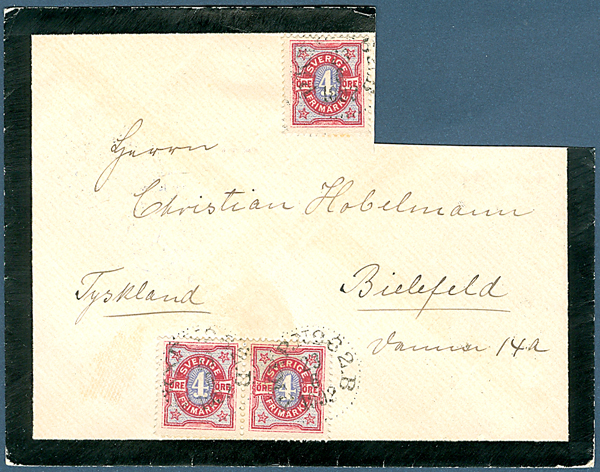 SVERIGE
4
ÖRE ÖRE
FRIMÄRKE
Herrn
Christian Hobelmann
Tyskland
Bielefeld
14a
SVERIGE SVERIGE
4 4
ÖRE ÖRE ÖRE ÖRE
FRIMÄRKE FRIMÄRKE